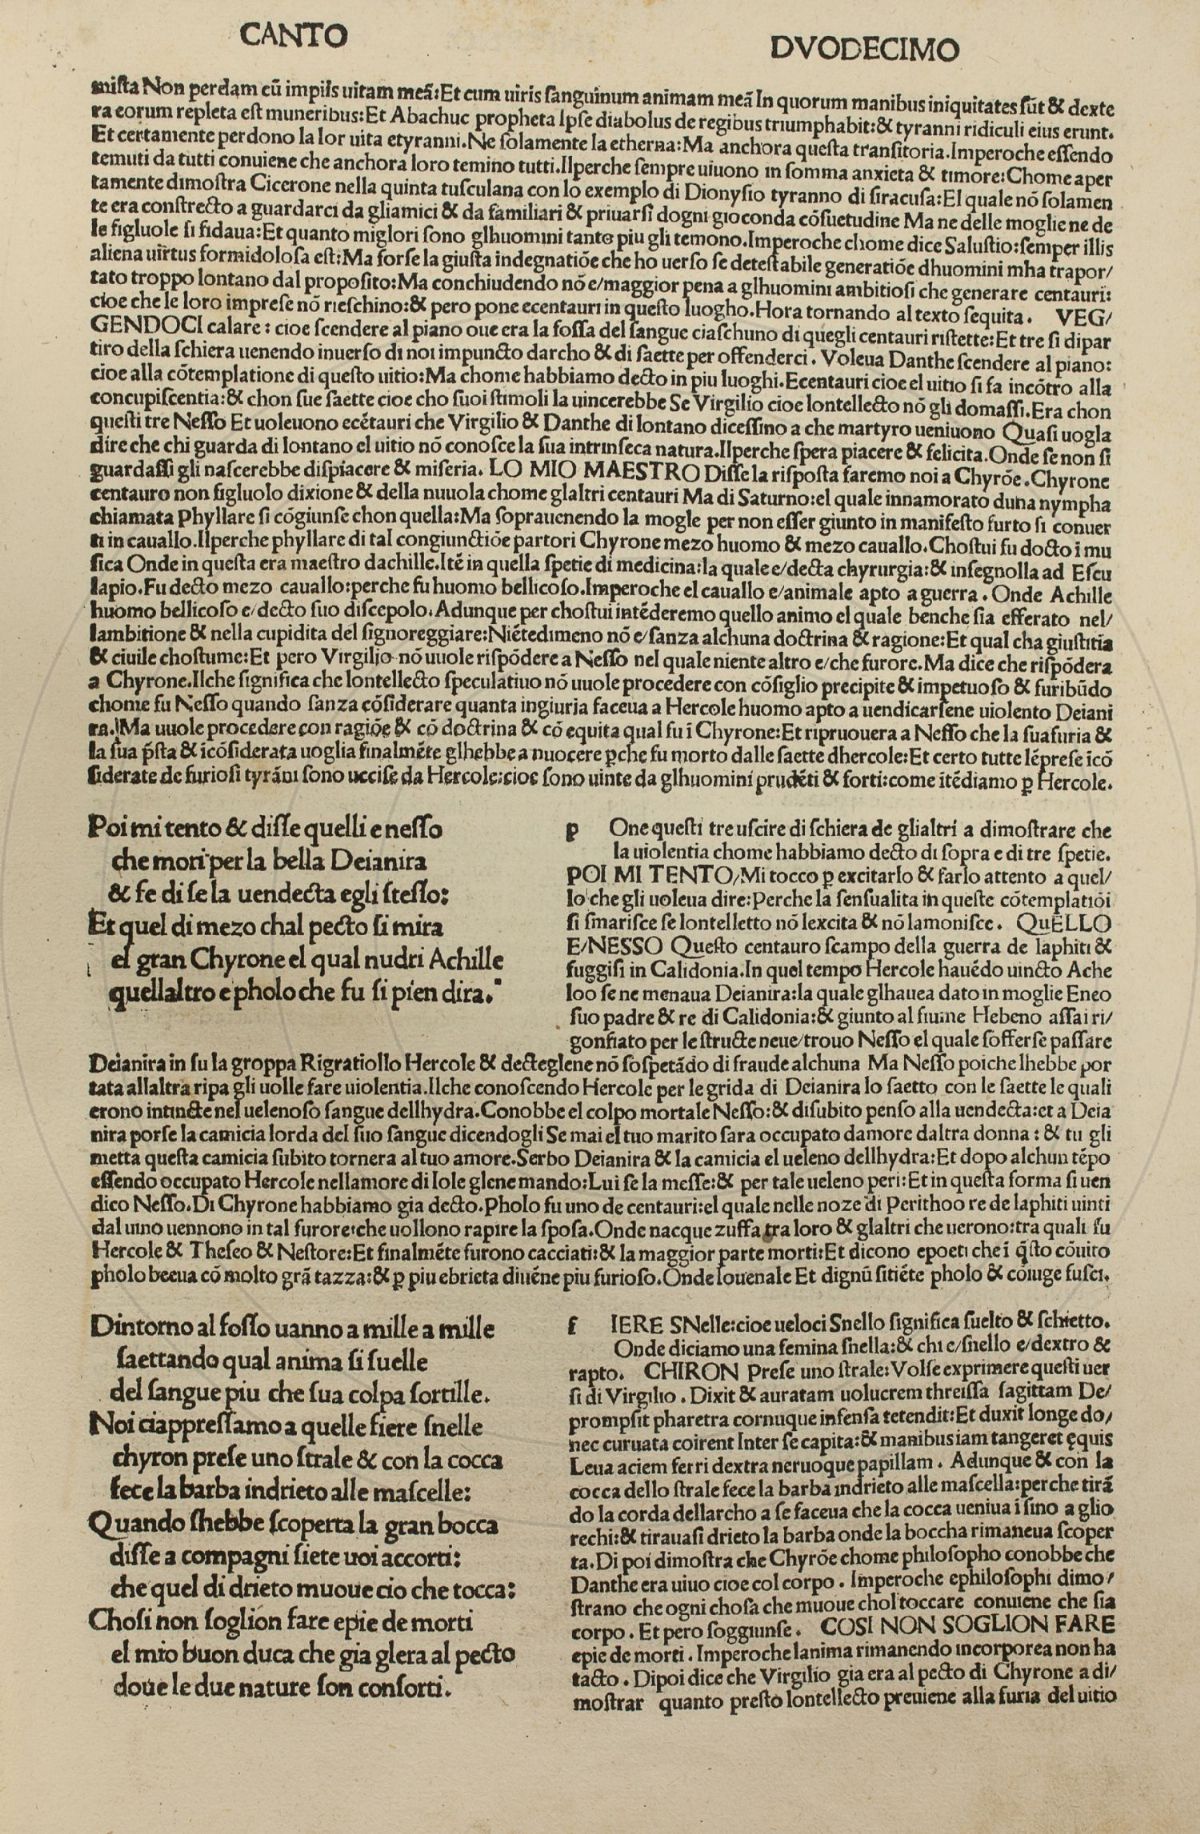 CANTO
DVODECIMO
mista Non perdam cū impiis uitam meā: Et cum uiris sanguinum animam meā In quorum manibus iniquitates sūt & dexte
ra eorum repleta est muneribus: Et Abachuc propheta Ipse diabolus de regibus triumphabit: & tyranni ridiculi eius erunt.
Et certamente perdono la lor uita etyranni. Ne solamente la etherna: Ma anchora questa transitoria. Imperoche essendo
temuti da tutti conuiene che anchora loro temino tutti. Ilperche sempre uiuono in somma anxieta & timore: Chome aper
tamente dimostra Cicerone nella quinta tusculana con lo exemplo di Dionysio tyranno di siracusa: El quale nō solamen
te era constrecto a guardarci da gliamici & da familiari & priuarsi dogni gioconda cōsuetudine Ma ne delle moglie ne de
le figluole si fidaua: Et quanto miglori sono glhuomini tanto piu gli temono. Imperoche chome dice Salustio: semper illis
aliena uirtus formidolosa est: Ma forse la giusta indegnatiōe che ho uerso se detestabile generatiōe dhuomini mha trapor/
tato troppo lontano dal proposito: Ma conchiudendo nō e/maggior pena a glhuomini ambitiosi che generare centauri:
cioe che le loro imprese nō rieschino: & pero pone ecentauri in questo luogho. Hora tornando al texto sequita. VEG/
GENDOCI calare: cioe scendere al piano oue era la fossa del sangue ciaschuno di quegli centauri ristette: Et tre si dipar
tiro della schiera uenendo inuerso di noi impuncto darcho & di saette per offenderci. Voleua Danthe scendere al piano:
cioe alla cōtemplatione di questo uitio: Ma chome habbiamo decto in piu luoghi. Ecentauri cioe el uitio si fa incōtro alla
concupiscentia: & chon sue saette cioe cho suoi stimoli la uincerebbe Se Virgilio cioe lontellecto nō gli domassi. Era chon
questi tre Nesso Et uoleuono ecētauri che Virgilio & Danthe di lontano dicessino a che martyro ueniuono Quasi uogla
dire che chi guarda di lontano el uitio nō conosce la sua intrinseca natura. Ilperche spera piacere & felicita. Onde se non si
guardassi gli nascerebbe dispiacere & miseria. LO MIO MAESTRO Disse la risposta faremo noi a Chyrōe. Chyrone
centauro non figluolo dixione & della nuuola chome glaltri centauri Ma di Saturno: el quale innamorato duna nympha
chiamata Phyllare si cōgiunse chon quella: Ma soprauenendo la mogle per non esser giunto in manifesto furto si conuer
ti in cauallo. Ilperche phyllare di tal congiunctiōe partori Chyrone mezo huomo & mezo cauallo. Chostui fu docto ī mu
sica Onde in questa era maestro dachille. Itē in quella spetie di medicina: la quale e/decta chyrurgia: & insegnolla ad Escu
lapio. Fu decto mezo cauallo: perche fu huomo bellicoso. Imperoche el cauallo e/animale apto a guerra. Onde Achille
huomo bellicoso e/decto suo discepolo. Adunque per chostui intēderemo quello animo el quale benche sia efferato nel/
lambitione & nella cupidita del signoreggiare: Niētedimeno nō e/sanza alchuna doctrina & ragione: Et qual cha giustitia
& ciuile chostume: Et pero Virgilio nō uuole rispōdere a Nesso nel quale niente altro e/che furore. Ma dice che rispōdera
a Chyrone. Ilche significa che lontellecto speculatiuo nō uuole procedere con cōsiglio precipite & impetuoso & furibūdo
chome fu Nesso quando sanza cōsiderare quanta ingiuria faceua a Hercole huomo apto a uendicarsene uiolento Deiani
ra. Ma uuole procedere con ragiōe & cō doctrina & cō equita qual fu ī Chyrone: Et ripruouera a Nesso che la sua furia &
la sua p̄sta & īcōsiderata uoglia finalmēte glhebbe a nuocere ꝑche fu morto dalle saette dhercole: Et certo tutte lēprese īcō
siderate de furiosi tyrāni sono uccise da Hercole: cioe sono uinte da glhuomini prudēti & forti: come itēdiamo ꝑ Hercole.
Poi mi tento & disse quelli e nesso
che mori per la bella Deianira
& fe di se la uendecta egli stesso:
Et quel di mezo chal pecto si mira
el gran Chyrone el qual nudri Achille
quellaltro e pholo che fu si pien dira.
p One questi tre uscire di schiera de glialtri a dimostrare che
la uiolentia chome habbiamo decto di sopra e di tre spetie.
POI MI TENTO/Mi tocco ꝑ excitarlo & farlo attento a quel/
lo che gli uoleua dire: Perche la sensualita in queste cōtemplatiōi
si smarisce se lontelletto nō lexcita & nō lamonisce. QuELLO
E/NESSO Questo centauro scampo della guerra de laphiti &
fuggisi in Calidonia. In quel tempo Hercole hauēdo uincto Ache
loo se ne menaua Deianira: la quale glhauea dato in moglie Eneo
suo padre & re di Calidonia: & giunto al fiume Hebeno assai ri/
gonfiato per le structe neue/trouo Nesso el quale sofferse passare
Deianira in su la groppa Rigratiollo Hercole & decteglene nō sospetādo di fraude alchuna Ma Nesso poiche lhebbe por
tata allaltra ripa gli uolle fare uiolentia. Ilche conoscendo Hercole per le grida di Deianira lo saetto con le saette le quali
erono intincte nel uelenoso sangue dellhydra. Conobbe el colpo mortale Nesso: & disubito penso alla uendecta: et a Deia
nira porse la camicia lorda del suo sangue dicendogli Se mai el tuo marito sara occupato damore daltra donna: & tu gli
metta questa camicia subito tornera al tuo amore. Serbo Deianira & la camicia el ueleno dellhydra: Et dopo alchun tēpo
essendo occupato Hercole nellamore di Iole glene mando: Lui se la messe: & per tale ueleno peri: Et in questa forma si uen
dico Nesso. Di Chyrone habbiamo gia decto. Pholo fu uno de centauri: el quale nelle noze di Perithoo re de laphiti uinti
dal uino uennono in tal furore: che uollono rapire la sposa. Onde nacque zuffa tra loro & glaltri che uerono: tra quali fu
Hercole & Theseo & Nestore: Et finalmēte furono cacciati: & la maggior parte morti: Et dicono epoeti che ī q̄sto cōuito
pholo beeua cō molto grā tazza: & ꝑ piu ebrieta diuēne piu furioso. Onde Iouenale Et dignū sitiēte pholo & cōiuge fusci.
Dintorno al fosso uanno a mille a mille
saettando qual anima si suelle
del sangue piu che sua colpa sortille.
Noi ciappressamo a quelle fiere snelle
chyron prese uno strale & con la cocca
fece la barba indrieto alle mascelle:
Quando shebbe scoperta la gran bocca
disse a compagni siete uoi accorti:
che quel di drieto muoue cio che tocca:
Chosi non soglion fare epie de morti
el mio buon duca che gia glera al pecto
doue le due nature son consorti.
f IERE SNelle: cioe ueloci Snello significa suelto & schietto.
Onde diciamo una femina snella: & chi e/snello e/dextro &
rapto. CHIRON Prese uno strale: Volse exprimere questi uer
si di Virgilio. Dixit & auratam uolucrem threissa sagittam De/
prompsit pharetra cornuque infensa tetendit: Et duxit longe do/
nec curuata coirent Inter se capita: & manibus iam tangeret ęquis
Leua aciem ferri dextra neruoque papillam. Adunque & con la
cocca dello strale fece la barba indrieto alle mascella: perche tirā
do la corda dellarcho a se faceua che la cocca ueniua i sino a glio
rechi: & tirauasi drieto la barba onde la boccha rimaneua scoper
ta. Di poi dimostra che Chyrōe chome philosopho conobbe che
Danthe era uiuo cioe col corpo. Imperoche ephilosophi dimo/
strano che ogni chosa che muoue chol toccare conuiene che sia
corpo. Et pero soggiunse. COSI NON SOGLION FARE
epie de morti. Imperoche lanima rimanendo incorporea non ha
tacto. Dipoi dice che Virgilio gia era al pecto di Chyrone a di/
mostrar quanto presto lontellecto preuiene alla furia del uitio